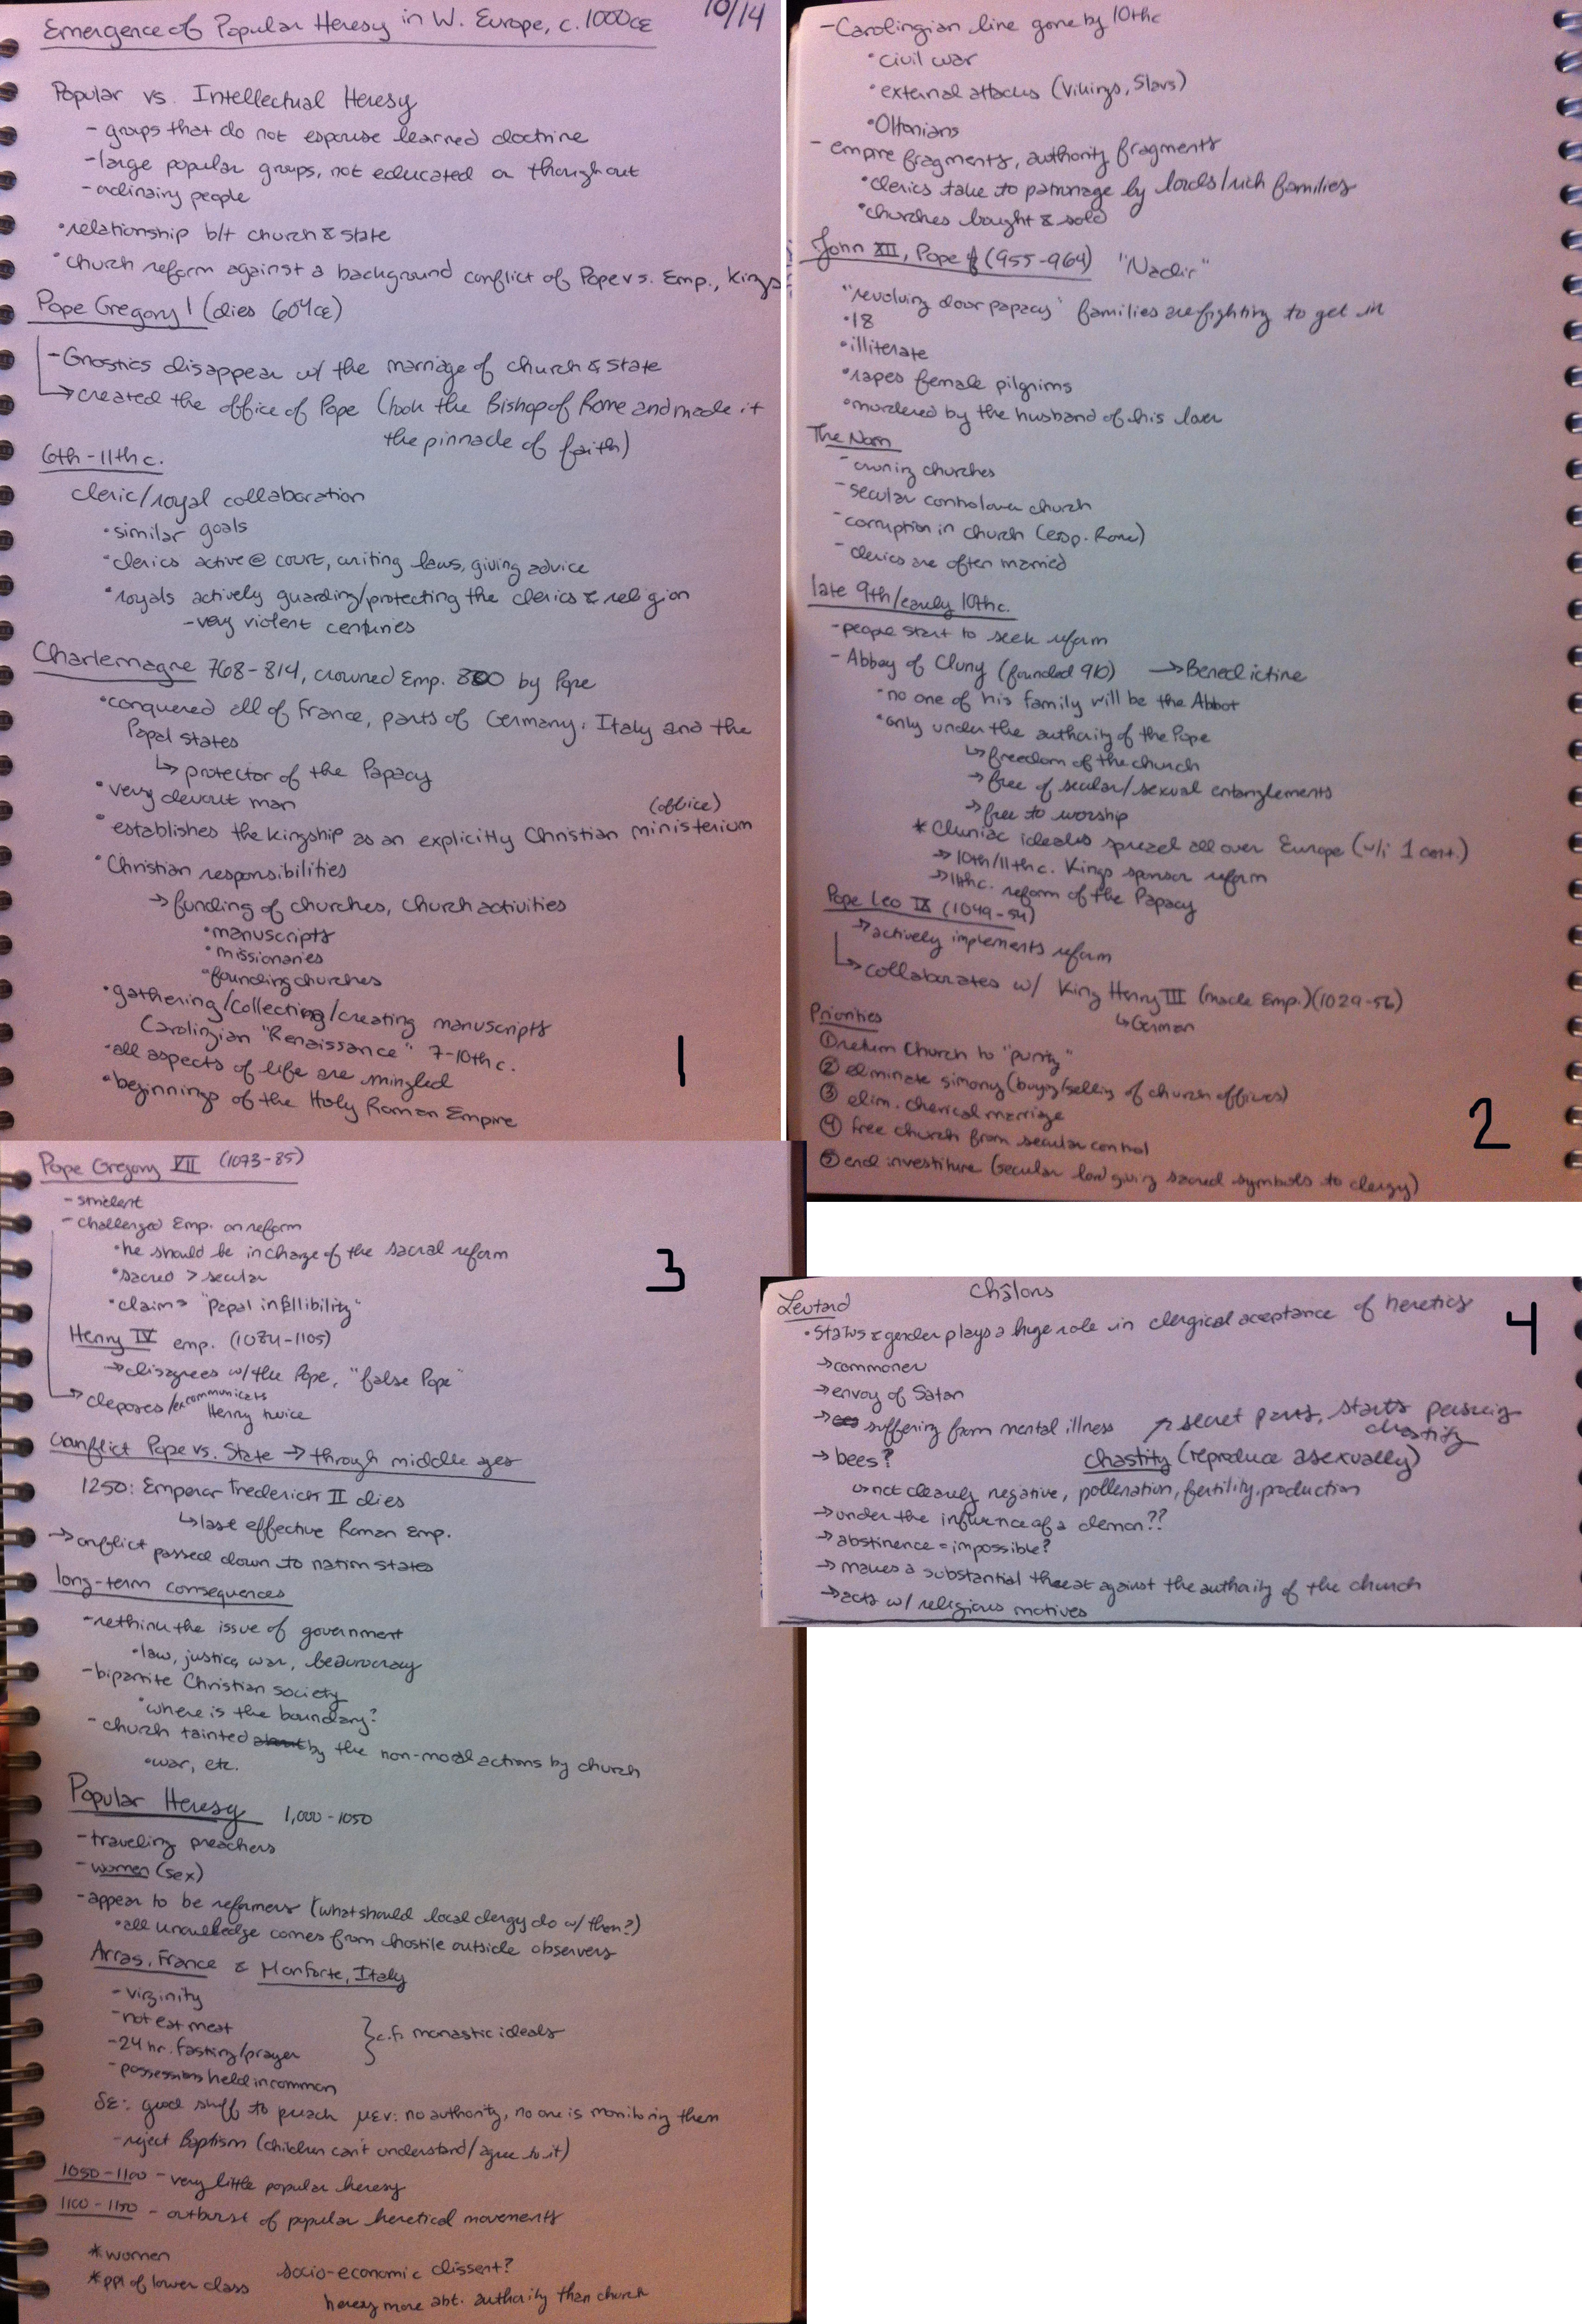 Emergence of Popular Heresy in W. Europe, c. 1000CE 10/14
Popular vs. Intellectual Heresy
- groups that do not espouse learned doctrine
- large popular groups, not educated or thought out
- ordinairy people
• relationship b/t church & state
• church reform against a background conflict of Pope vs. Emp., Kings
Pope Gregory I (dies 604CE)
- Gnostics disappear w/ the marriage of church & state
→ created the office of Pope (took the Bishop of Rome and made it
the pinnacle of faith)
6th - 11th c.
cleric/royal collaboration
• similar goals
• clerics active @ court, writing laws, giving advice
• royals actively guarding/protecting the clerics & religion
- very violent centuries
Charlemagne 768-814, crowned Emp. 800 by Pope
• conquered all of France, parts of Germany, Italy and the
Papal states
↳ protector of the Papacy
• very devout man
(office)
• establishes the kingship as an explicitly Christian ministerium
• Christian responsibilities
→ funding of churches, church activities
• manuscripts
• missionaries
• founding churches
• gathering/collecting/creating manuscripts
Carolingian "Renaissance" 7-10th c.
• all aspects of life are mingled
• beginnings of the Holy Roman Empire
1
- Carolingian line gone by 10thc
• civil war
• external attacks (Vikings, Slavs)
• Ottonians
- empire fragments, authority fragments
• clerics take to patronage by lords/rich families
• churches bought & sold
John XII, Pope (955-964) "Nadir"
"revolving door papacy" families are fighting to get in
• 18
• illiterate
• rapes female pilgrims
• murdered by the husband of his lover
The Norm
- owning churches
- secular control over church
- corruption in church (esp. Rome)
- clerics are often married
late 9th/early 10th c.
- people start to seek reform
- Abbey of Cluny (founded 910) → Benedictine
• no one of his family will be the Abbot
• only under the authority of the Pope
↳ freedom of the church
→ free of secular/sexual entanglements
→ free to worship
* Cluniac ideales spread all over Europe (w/i 1 cent.)
→ 10th/11th c. Kings sponsor reform
→ 11thc. reform of the Papacy
Pope Leo IX (1049-54)
→ actively implements reform
↳ collaborates w/ King Henry III (made Emp.) (1029-56)
↳ German
Priorities
① return Church to "purity"
② eliminate simony (buying/selling of church offices)
③ elim. cherical marriage
④ free church from secular control
⑤ end investiture (secular lord giving sacred symbols to clergy)
2
Pope Gregory VII (1073-85)
- strident
- challenged Emp. on reform
• he should be in charge of the sacral reform
• sacred > secular
• claims "Papal infallibility"
Henry IV emp. (1084-1105)
→ disagrees w/ the Pope, "false Pope"
→ deposes/excommunicats
Henry twice
conflict Pope vs. State → through middle ages
1250: Emperor Frederick II dies
↳ last effective Roman Emp.
→ conflict passed down to nation states
long-term consequences
- rethink the issue of government
• law, justice, war, beaurocracy
- bipartite Christian society
• where is the boundary?
- church tainted about by the non-moral actions by church
• war, etc.
Popular Heresy 1,000 - 1050
- traveling preachers
- women (sex)
- appear to be reformers (what should local clergy do w/ them?)
• all knowledge comes from hostile outside observers
Arras, France & Monforte, Italy
- virginity
- not eat meat
- 24 hr. fasting/prayer
} c.f. monastic ideals
- possessions held in common
δε: good stuff to preach μεν: no authority, no one is monitoring them
- reject Baptism (children can't understand/agree to it)
1050-1100 - very little popular heresy
1100-1150 - outburst of popular heretical movements
* women
* ppl of lower class
socio-economic dissent?
heresy more abt. authority than church
3
Leutard Châlons
• Status & gender plays a huge role in clergical acceptance of heretics
→ commoner
→ envoy of Satan
→ suffering from mental illness
↗ secret parts, starts persuing
chastity
→ bees? chastity (reproduce asexually)
↳ not clearly negative, polleration, fertility, production
→ under the influence of a demon??
→ abstinence = impossible?
→ makes a substantial threat against the authority of the church
→ acts w/ religious motives
4